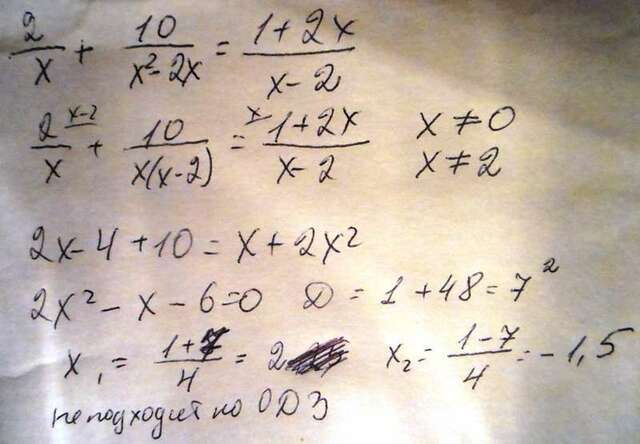 2/x + 10/(x²-2x) = (1+2x)/(x-2)
2/x ^(x-2) + 10/(x(x-2)) = ^(x) (1+2x)/(x-2) x≠0
x≠2
2x-4+10=x+2x²
2x²-x-6=0 D=1+48=7²
x₁=(1+7)/4=2 x₂=(1-7)/4=-1,5
не подходит по ОДЗ